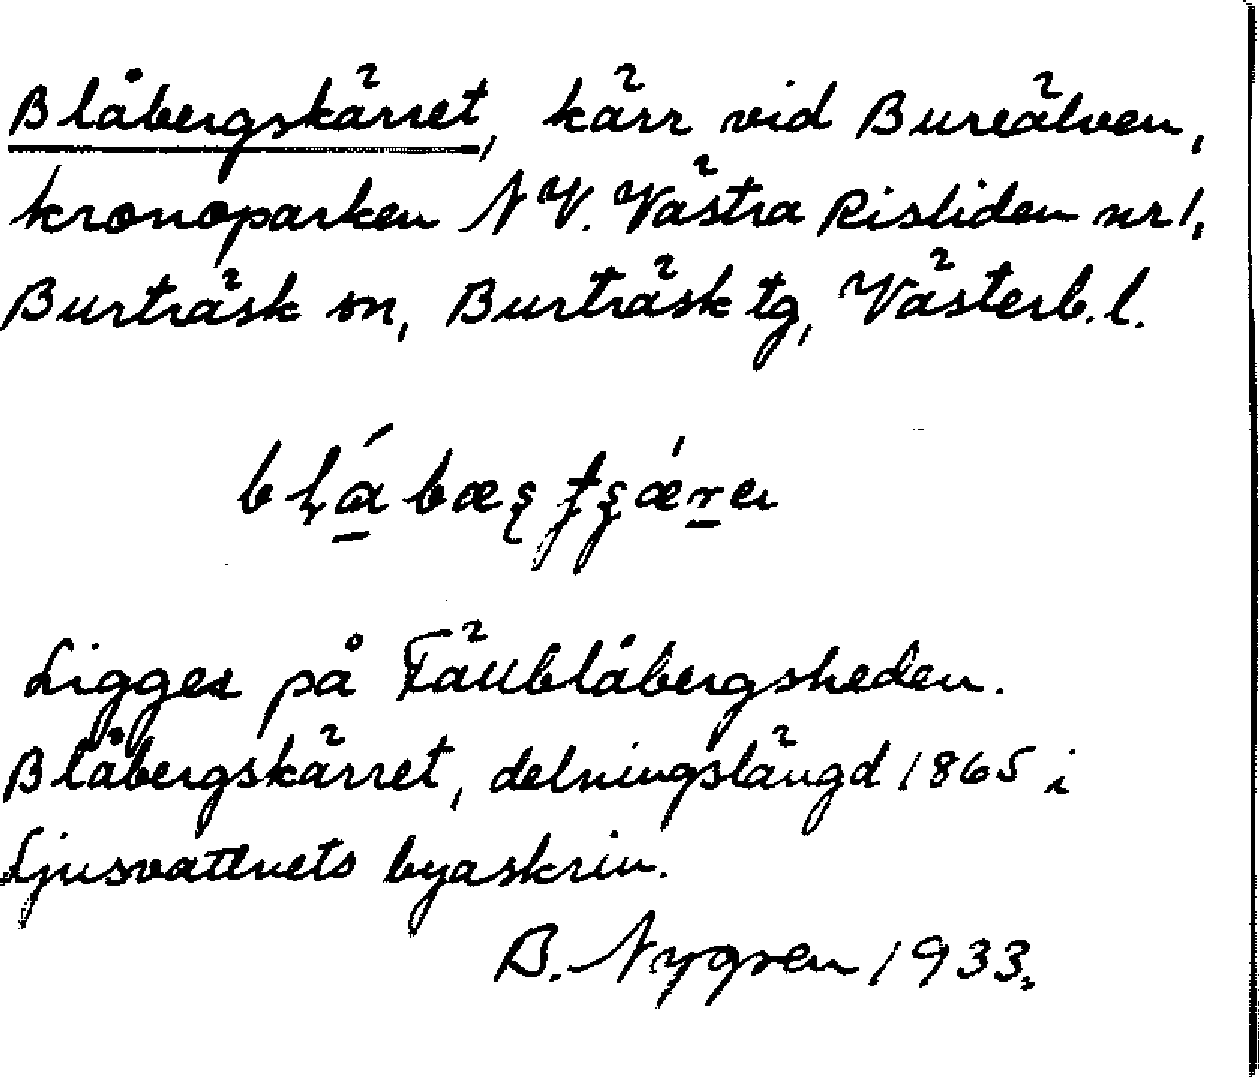 Blåbergskärret, kärr vid Bureälven,
kronoparken N V. Västra Risliden nr 1,
Burträsk sn, Burträsk tg, Västerb. l.
Ligger på Fällblåbergsheden.
Blåbergskärret, delningslängd 1865 i
Ljusvattnets byaskrin.
B. Nygren 1933.